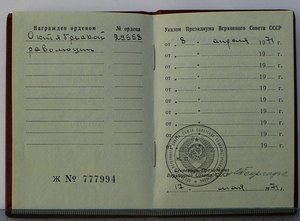 Награжден орденом № ордена
Октябрьской 29668
революции
Ж № 777994
Указом Президиума Верховного Совета СССР
от 5 апреля 1971 г.
от " " 19 г.
от " " 19 г.
от " " 19 г.
от " " 19 г.
от " " 19 г.
от " " 19 г.
от " " 19 г.
Секретарь Президиума
Верховного Совета СССР
17 мая 1971 г.